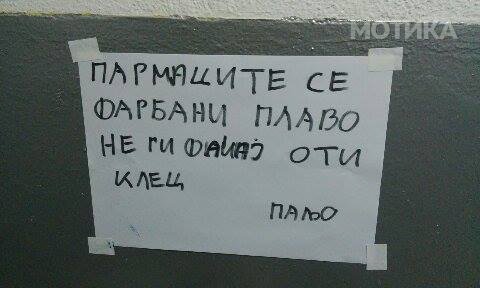 МОТИКА
ПАРМАЦИТЕ СЕ
ФАРБАНИ ПЛАВО
НЕ ГИ ОТИ
КЛЕЦ
ПАЉО